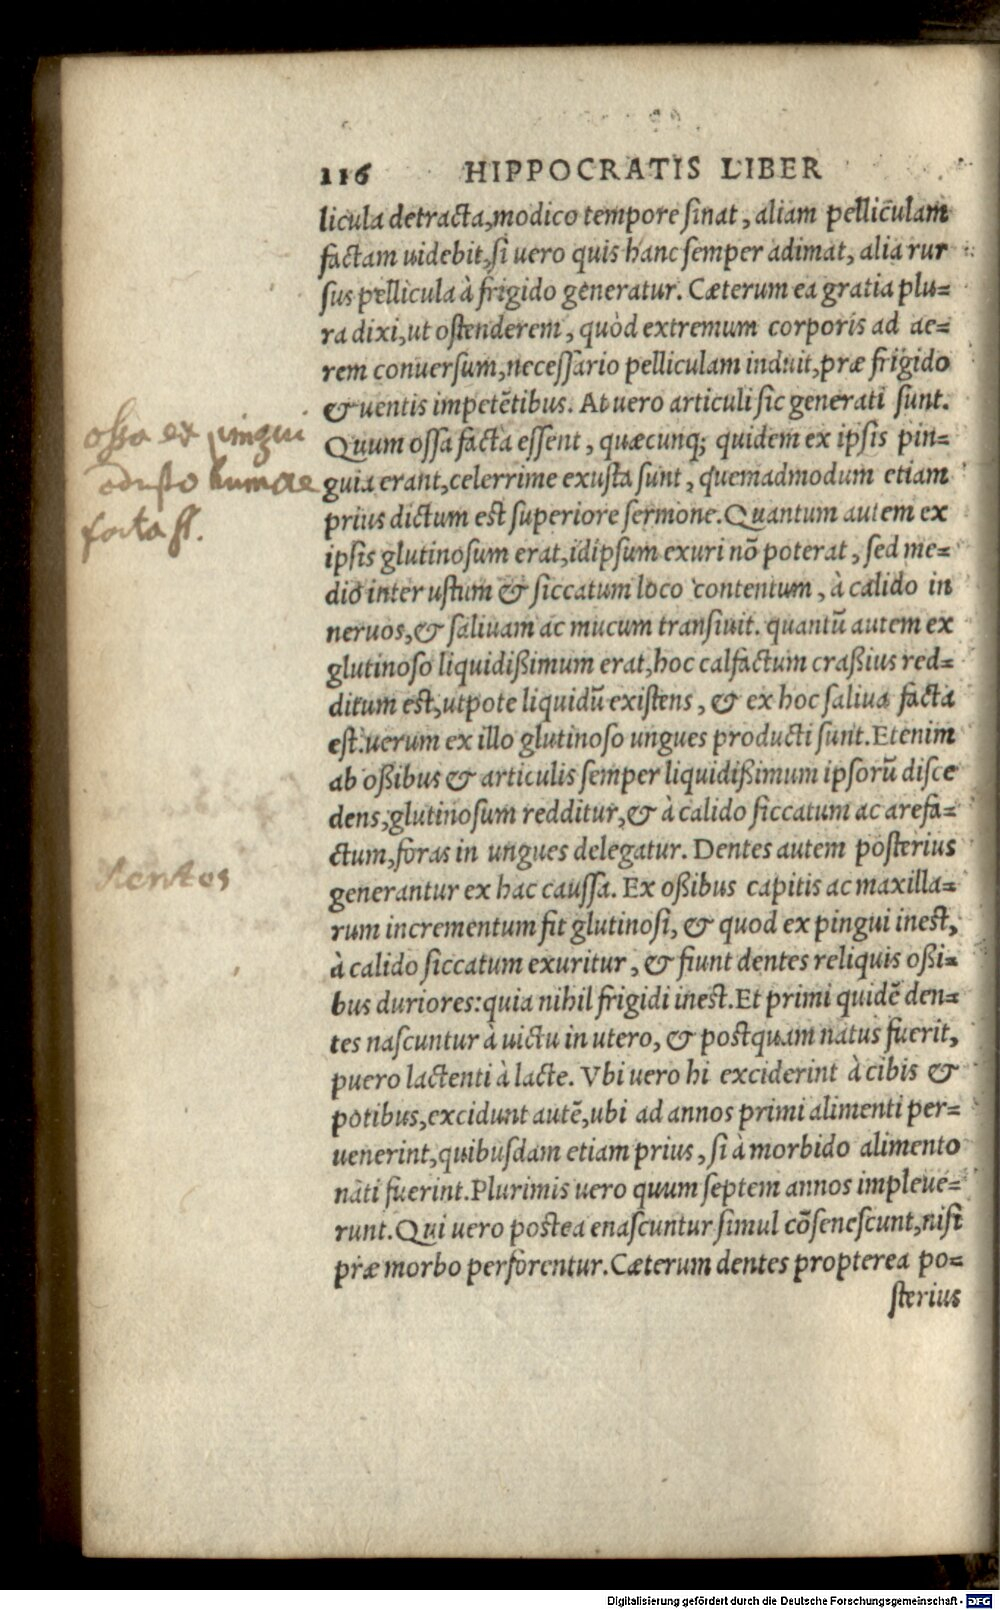 116 HIPPOCRATIS LIBER
licula detracta, modico tempore sinat, aliam pelliculam
factam uidebit, si uero quis hanc semper adimat, alia rur
sus pellicula à frigido generatur. Cæterum ea gratia plu=
ra dixi, ut ostenderem, quòd extremum corporis ad ae=
rem conuersum, necessario pelliculam induit, præ frigido
& uentis impetẽtibus. At uero articuli sic generati sunt.
Quum ossa facta essent, quæcunq; quidem ex ipsis pin=
guia erant, celerrime exusta sunt, quemadmodum etiam
prius dictum est superiore sermone. Quantum autem ex
ipsis glutinosum erat, idipsum exuri nõ poterat, sed me=
dio inter ustum & siccatum loco contentum, à calido in
neruos, & saliuam ac mucum transiuit. quantũ autem ex
glutinoso liquidißimum erat, hoc calfactum craßius red=
ditum est, utpote liquidũ existens, & ex hoc saliua facta
est: uerum ex illo glutinoso ungues producti sunt. Etenim
ab oßibus & articulis semper liquidißimum ipsorũ disce
dens, glutinosum redditur, & à calido siccatum ac arefa=
ctum, foras in ungues delegatur. Dentes autem posterius
generantur ex hac caussa. Ex oßibus capitis ac maxilla=
rum incrementum fit glutinosi, & quod ex pingui inest,
à calido siccatum exuritur, & fiunt dentes reliquis oßi=
bus duriores: quia nihil frigidi inest. Et primi quidẽ den=
tes nascuntur à uictu in utero, & postquam natus fuerit,
puero lactenti à lacte. Vbi uero hi exciderint à cibis &
potibus, excidunt autẽ, ubi ad annos primi alimenti per=
uenerint, quibusdam etiam prius, si à morbido alimento
nati fuerint. Plurimis uero quum septem annos impleue=
runt. Qui uero postea enascuntur simul cõsenescunt, nisi
præ morbo perforentur. Cæterum dentes propterea po=
sterius
ossa ex pingui
facta
Dentes
Digitalisierung gefördert durch die Deutsche Forschungsgemeinschaft - DFG